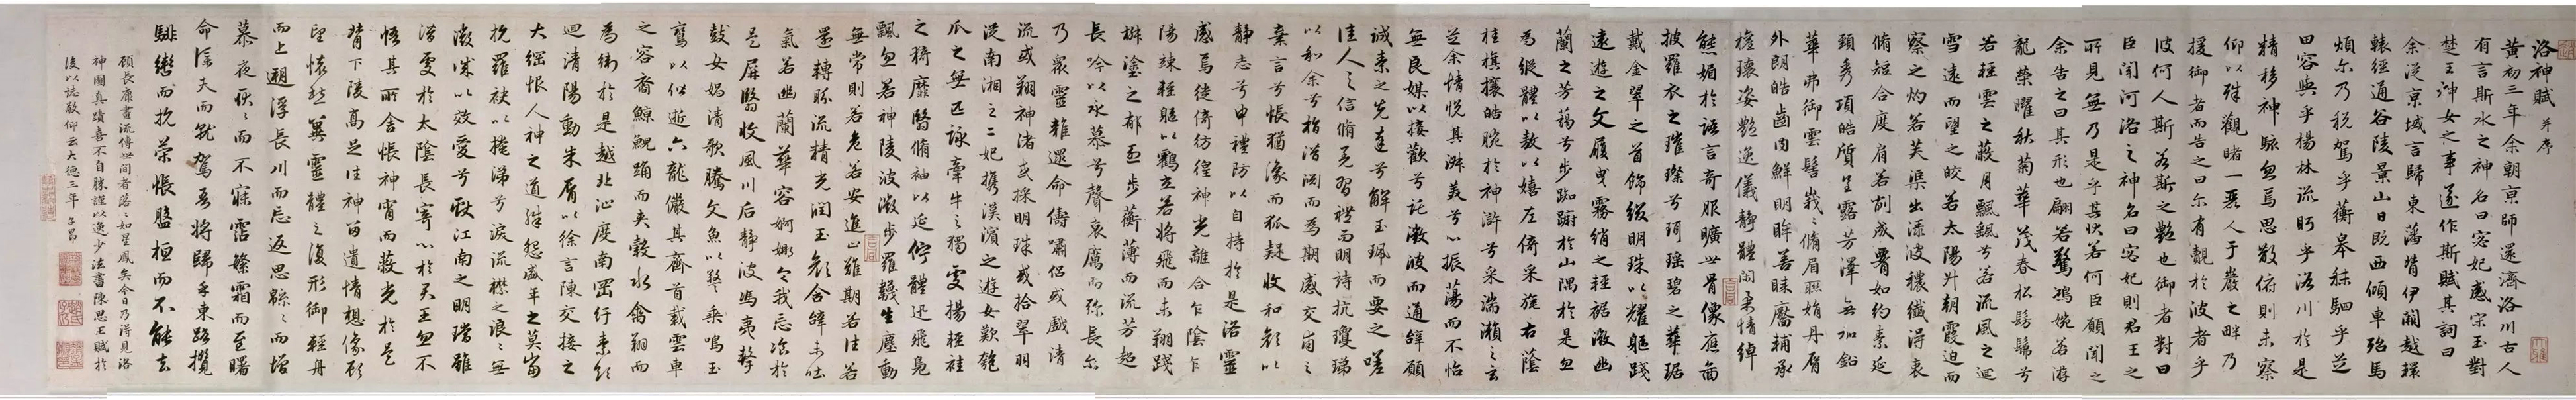 洛神賦 并序
黃初三年余朝京師還濟洛川古人
有言斯水之神名曰宓妃感宋玉對
楚王神女之事遂作斯賦其詞曰
余從京域言歸東藩背伊闕越轘
轅經通谷陵景山日既西傾車殆馬
煩尔乃稅駕乎蘅皋秣駟乎芝
田容與乎楊林流眄乎洛川於是
精移神駭忽焉思散俯則未察
仰以殊觀睹一麗人于巖之畔乃
援御者而告之曰尔有覿於彼者乎
彼何人斯若斯之艷也御者對曰
臣聞河洛之神名曰宓妃則君王之
所見無乃是乎其狀若何臣願聞之
余告之曰其形也翩若驚鴻婉若游
龍榮曜秋菊華茂春松髣髴兮
若輕雲之蔽月飄飖兮若流風之迴
雪遠而望之皎若太陽升朝霞迫而
察之灼若芙蕖出淥波穠纖得衷
脩短合度肩若削成腰如約素延
頸秀項皓質呈露芳澤無加鉛
華弗御雲髻峩〻脩眉聯娟丹脣
外朗皓齒內鮮明眸善睞靨輔承
權瓌姿艷逸儀靜體閑柔情綽
態媚於語言奇服曠世骨像應圖
披羅衣之璀璨兮珥瑤碧之華琚
戴金翠之首飾綴明珠以耀軀踐
遠遊之文履曳霧綃之輕裾微幽
蘭之芳藹兮步踟躕於山隅於是忽
焉縱體以敖以嬉左倚采旄右蔭
桂旗攘皓腕於神滸兮采湍瀨之玄
芝余情悅其淑美兮心振蕩而不怡
無良媒以接歡兮託微波而通辭願
誠素之先達兮解玉珮而要之嗟
佳人之信脩羌習禮而明詩抗瓊珶
以和余兮指潛淵而為期感交甫之
棄言兮悵猶豫而狐疑收和顏以
靜志兮申禮防以自持於是洛靈
感焉徙倚彷徨神光離合乍陰乍
陽竦輕軀以鶴立若將飛而未翔踐
椒塗之郁烈步蘅薄而流芳超
長吟以永慕兮聲哀厲而弥長尔
乃衆靈雜遝命儔嘯侶或戲清
流或翔神渚或採明珠或拾翠羽
從南湘之二妃攜漢濱之遊女歎匏
瓜之無匹詠牽牛之獨處揚輕袿
之猗靡翳脩袖以延佇體迅飛鳧
飄忽若神陵波微步羅韈生塵動
無常則若危若安進止難期若往若
還轉眄流精光潤玉顏含辭未吐
氣若幽蘭華容婀娜令我忘飡於
是屏翳收風川后靜波馮夷擊
鼓女媧清歌騰文魚以警乘鳴玉
鸞以偕逝六龍儼其齊首載雲車
之容裔鯨鯢踊而夾轂水禽翔而
為衛於是越北沚度南岡紆素領
迴清陽動朱脣以徐言陳交接之
大綱恨人神之道殊怨盛年之莫當
抗羅袂以掩涕兮淚流襟之浪〻無
微誠以效愛兮獻江南之明璫雖
潛處於太陰長寄心於君王忽不
悟其所舍悵神宵而蔽光於是
背下陵高足往神留遺情想像顧
望懷愁冀靈體之復形御輕舟
而上遡浮長川而忘返思緜〻而增
慕夜耿〻而不寐霑繁霜而至曙
命僕夫而就駕吾將歸乎東路攬
騑轡而抗策悵盤桓而不能去
顧長康畫流傳世間者落〻如星鳳矣今日乃得見洛
神圖真蹟喜不自勝謹以逸少法書陳思王賦於
後以誌敬仰云大德三年 子昂